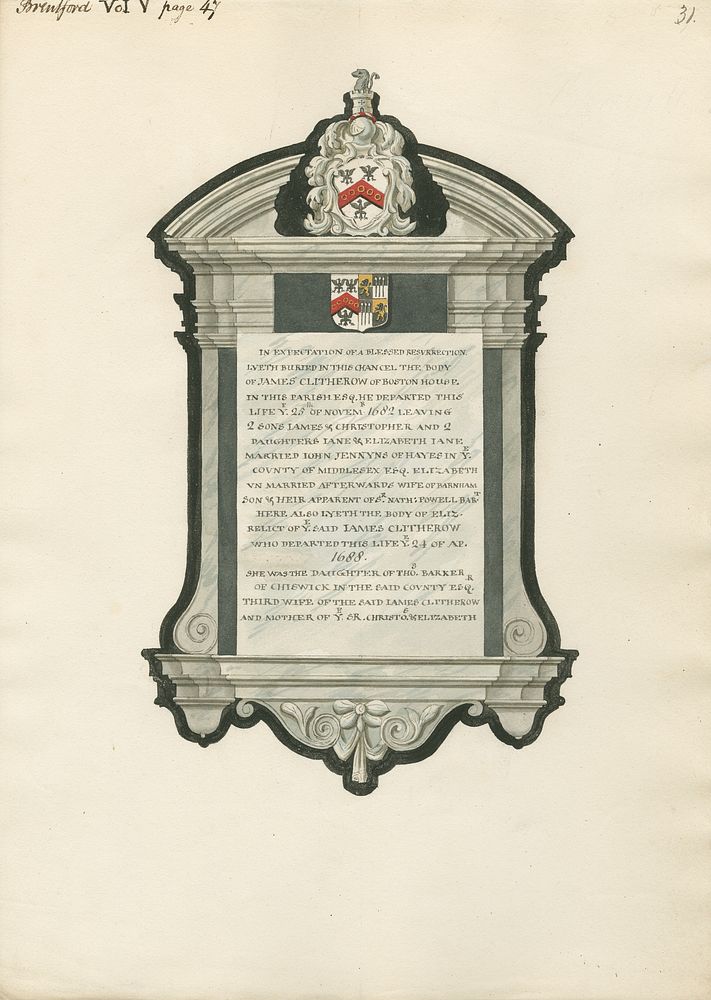 Brentford Vol V page 47
31.
IN EXPECTATION OF A BLESSED RESURRECTION
LYETH BURIED IN THIS CHANCEL THE BODY
OF JAMES CLITHEROW OF BOSTON HOUSE.
IN THIS PARISH ESQ. HE DEPARTED THIS
LIFE Y.E 25th OF NOVEM.R 1682 LEAVING
2 SONS IAMES & CHRISTOPHER AND 2
DAUGHTERS IANE & ELIZABETH IANE
MARRIED IOHN JENNYNS OF HAYES IN Y.E
COVNTY OF MIDDLESEX ESQ. ELIZABETH
VN MARRIED AFTERWARDS WIFE OF BARNHAM
SON & HEIR APPARENT OF S.R NATH: POWELL BAR.T
HERE ALSO LYETH THE BODY OF ELIZ.
RELICT OF Y.E SAID IAMES CLITHEROW
WHO DEPARTED THIS LIFE Y.E 24 OF AP.
1688.
SHE WAS THE DAUGHTER OF THO.S BARKER
OF CHISWICK IN THE SAID COVNTY ESQ.R
THIRD WIFE OF THE SAID IAMES CLITHEROW
AND MOTHER OF Y.E SR. CHRISTO.S & ELIZABETH